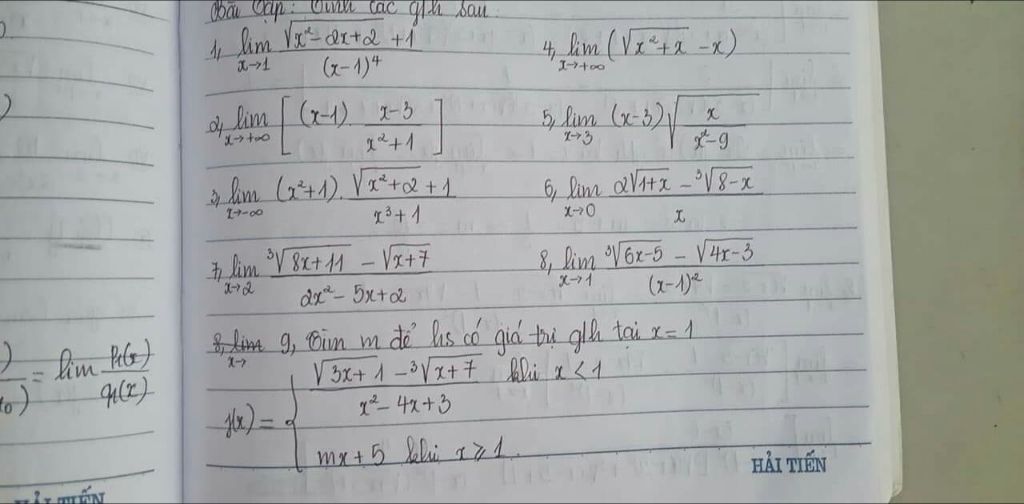 Bài tập: Tính các g/h sau:
1, lim x→1 (√(x²-2x+2) +1)/(x-1)⁴
4, lim x→+∞ (√(x²+x) -x)
2, lim x→+∞ [(x-1) (x-3)/(x²+1)]
5, lim x→3 (x-3)√(x/(x²-9))
3, lim x→-∞ (x²+1). (√(x²+2) +1)/(x³+1)
6, lim x→0 (2√(1+x) - ³√(8-x))/x
7, lim x→2 (³√(8x+11) - √(x+7))/(2x²-5x+2)
8, lim x→1 (³√(6x-5) - √(4x-3))/(x-1)²
8, lim x→ 9, Tìm m để hs có giá trị g/h tại x=1
f(x) = { (√(3x+1) - ³√(x+7))/(x²-4x+3) khi x<1
mx+5 khi x⩾1
= lim P₁(x)/q₁(x)
HẢI TIẾN
HẢI TIẾN